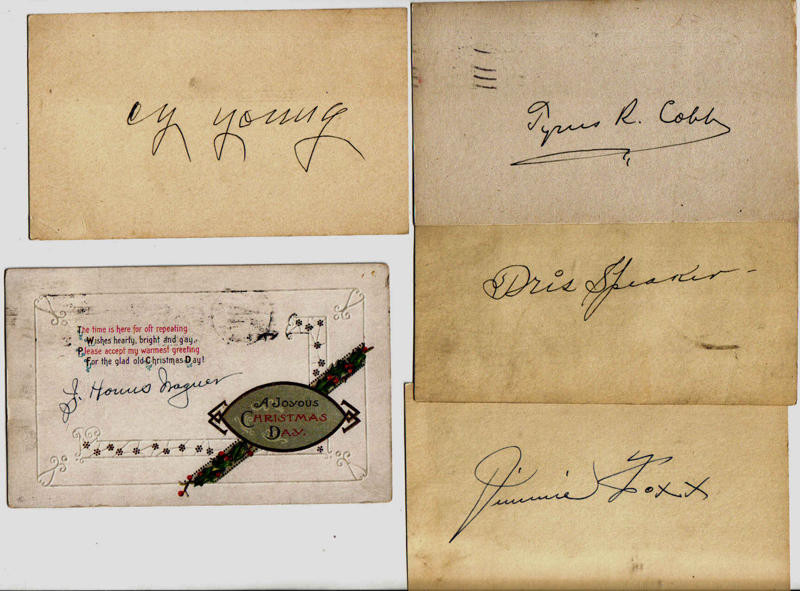 cy young
Tyrus R. Cobb
Tris Speaker
The time is here for oft repeating
Wishes hearty, bright and gay,
Please accept my warmest greeting
For the glad old Christmas Day!
J. Honus Wagner
A Joyous
Christmas
Day.
Jimmie Foxx